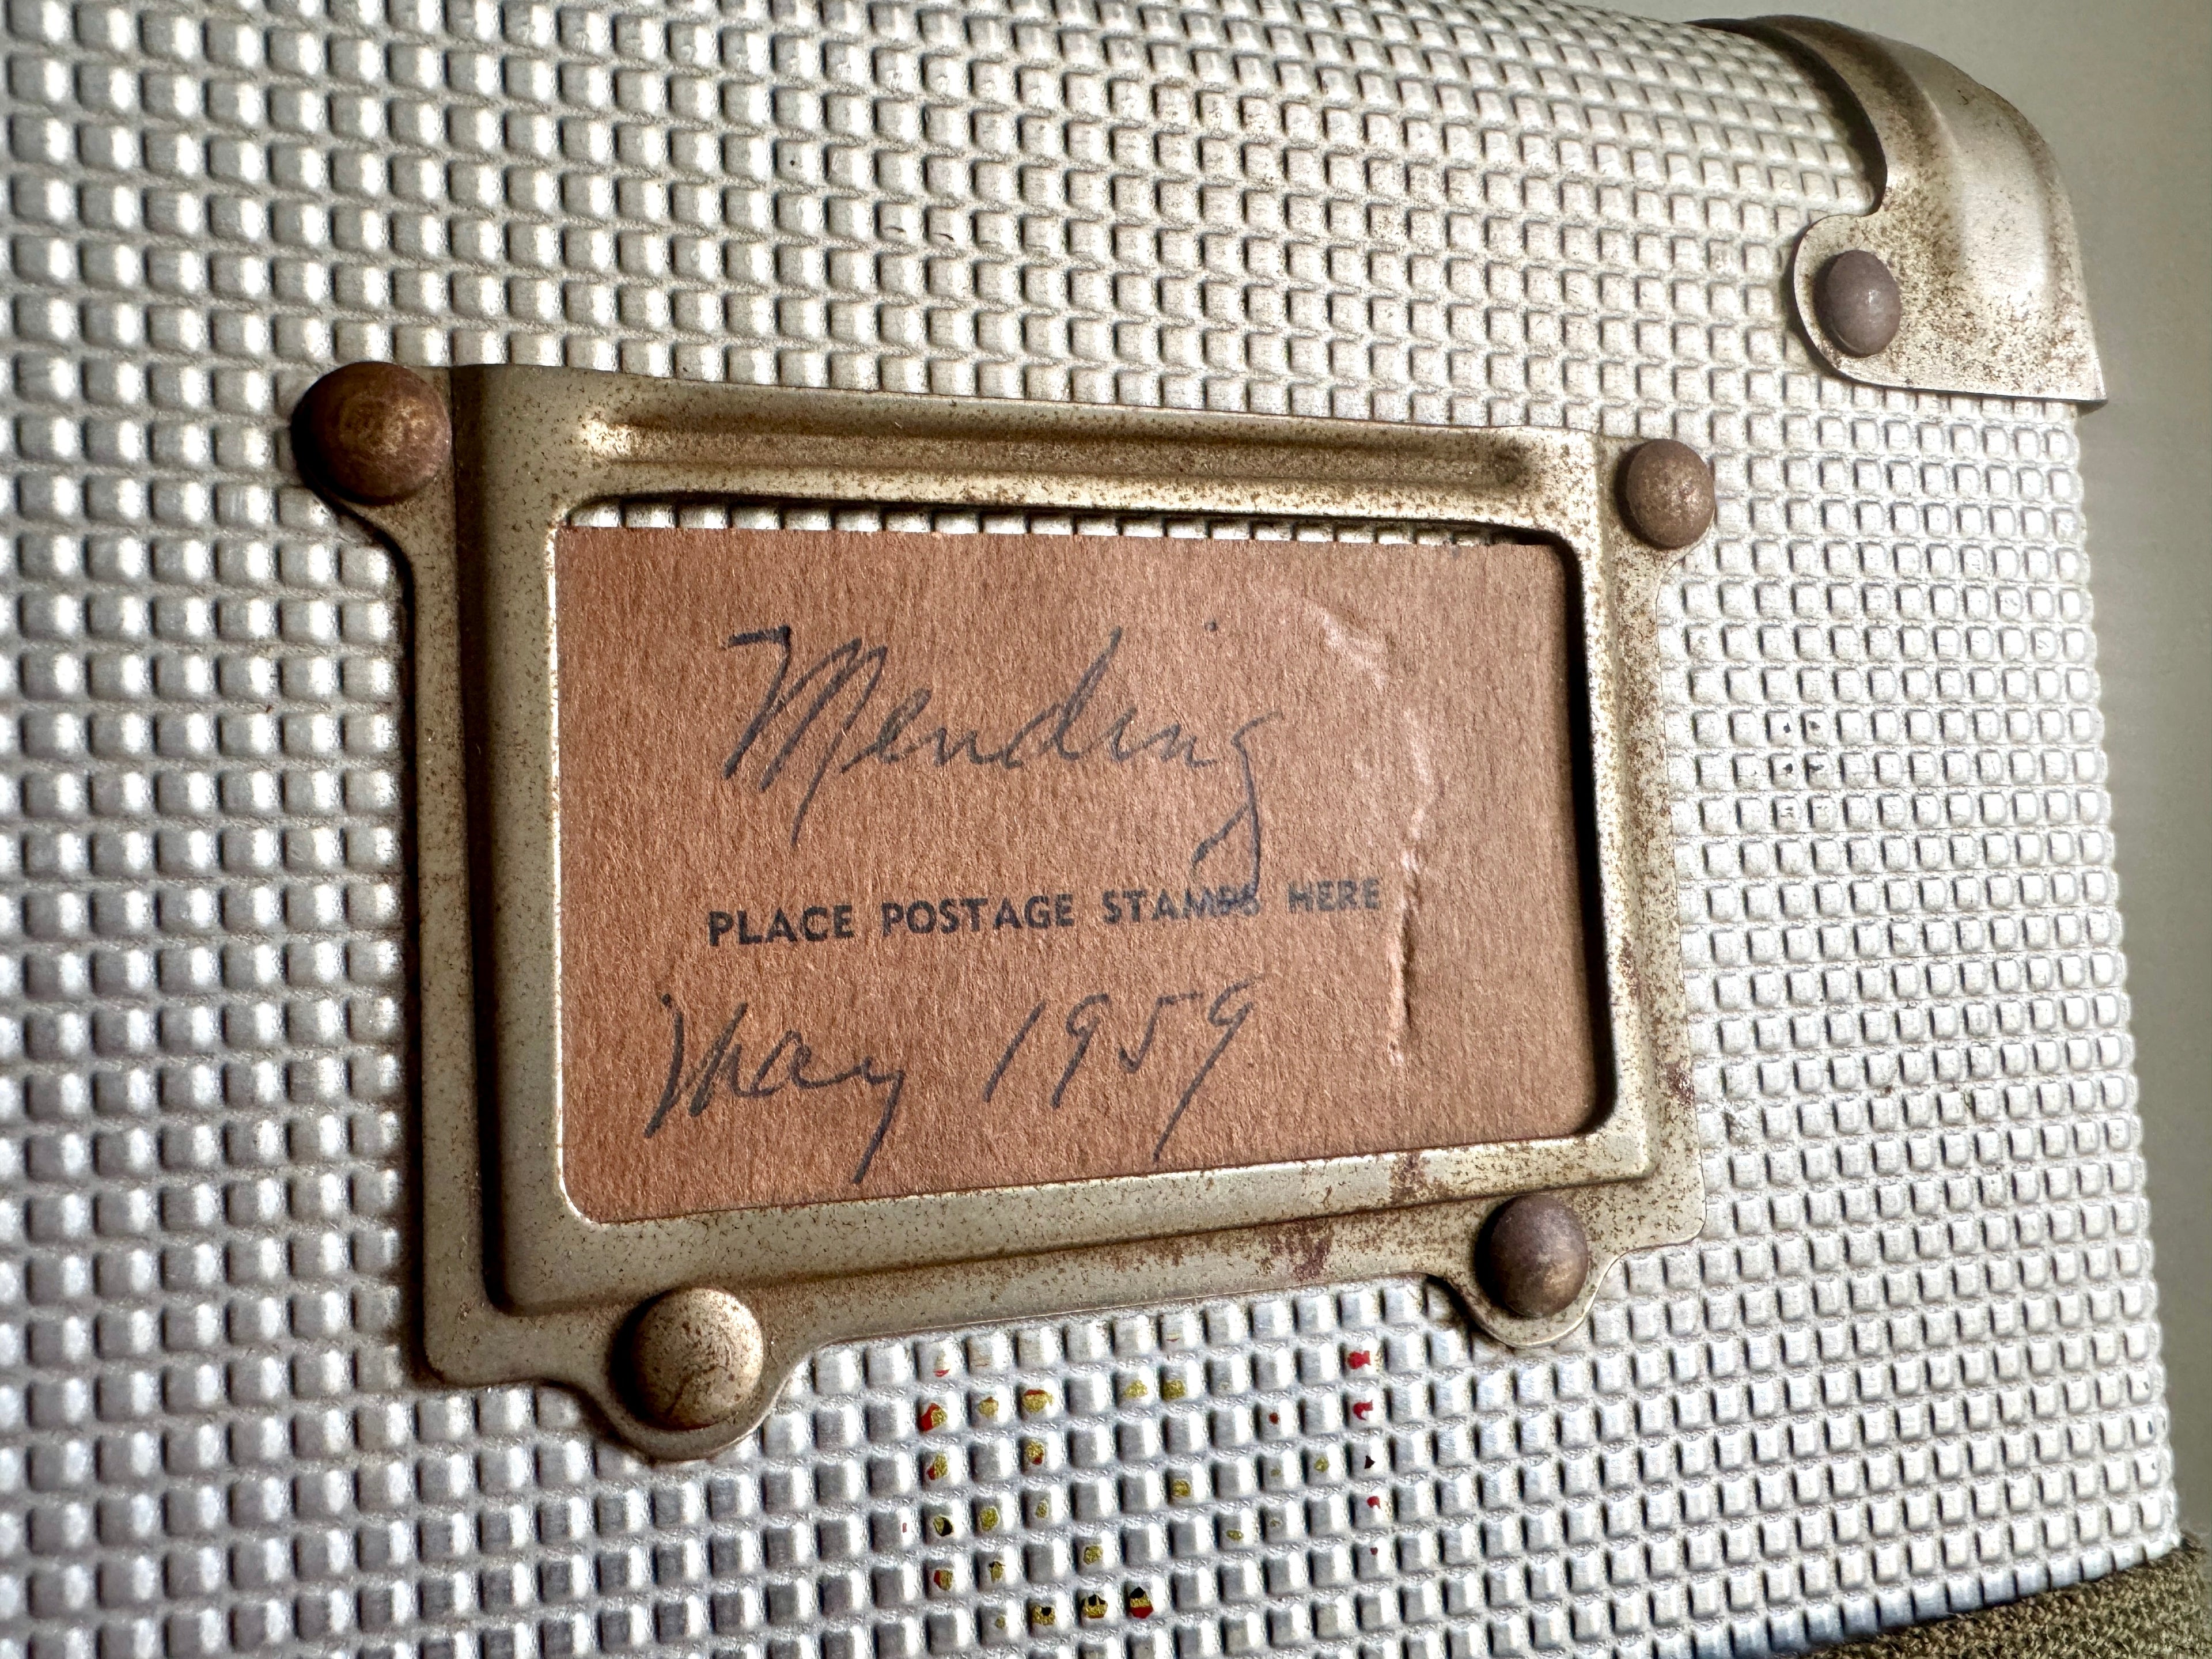 Mending
PLACE POSTAGE STAMPS HERE
May 1959